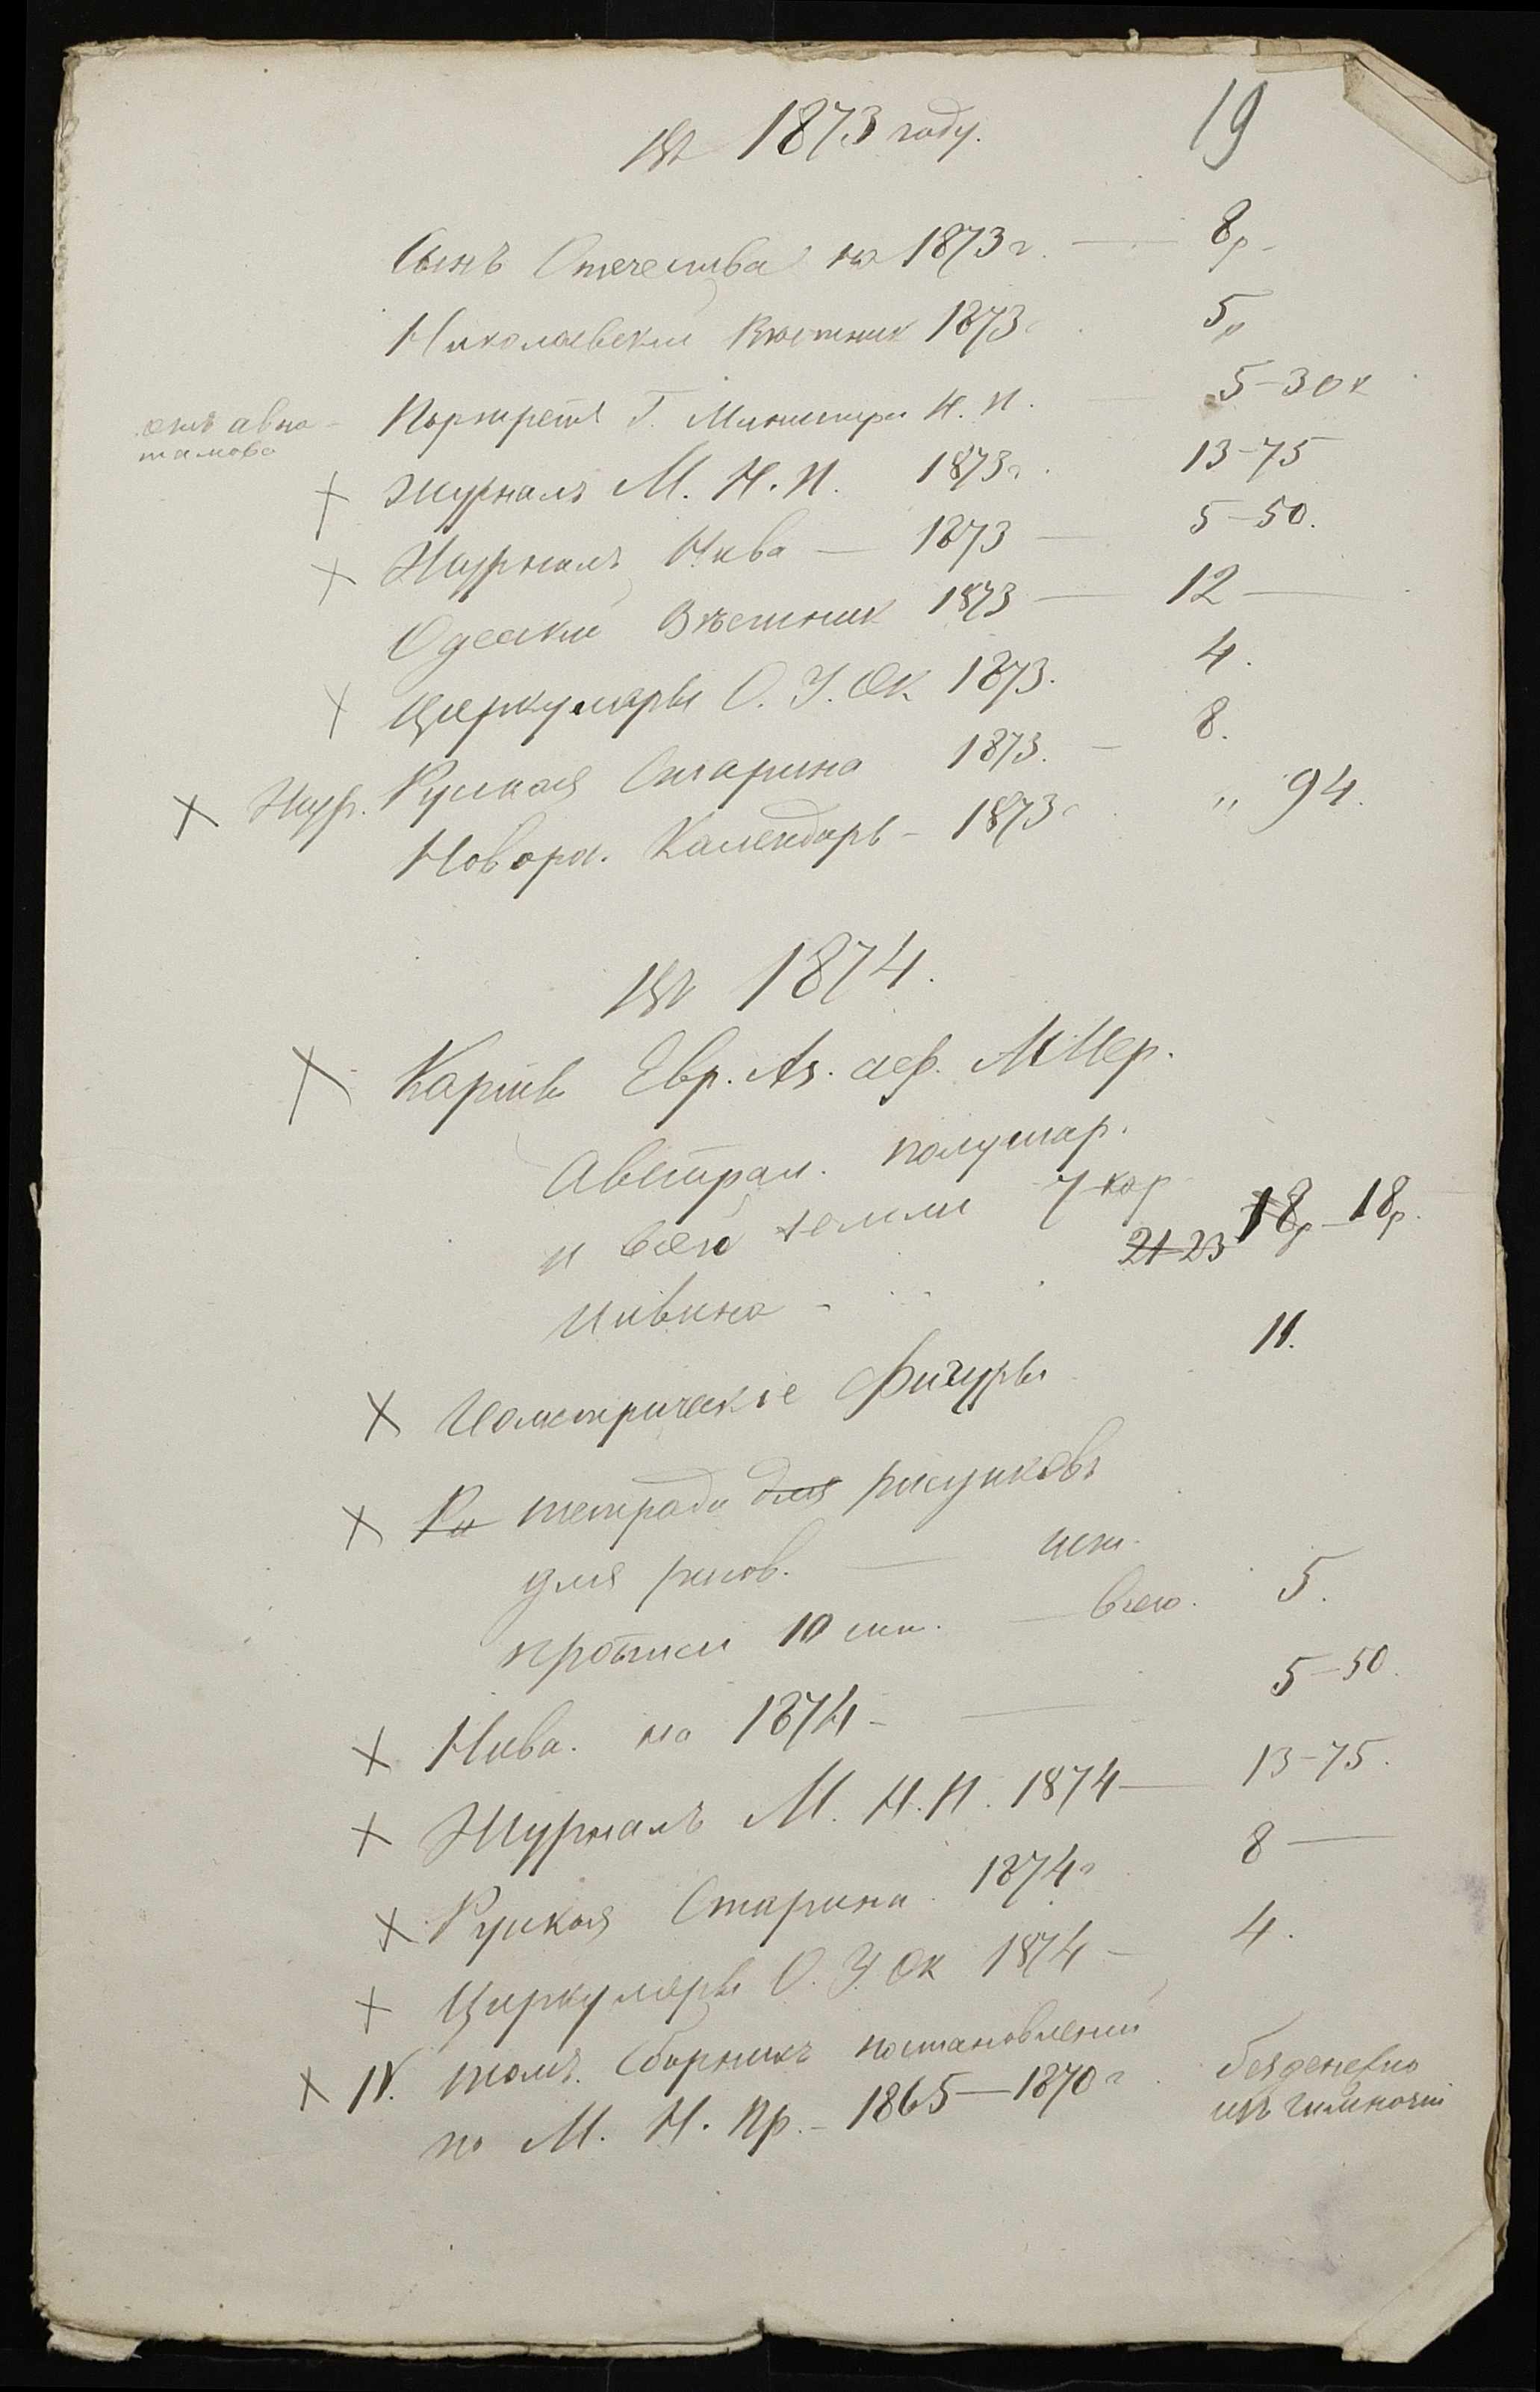 19
Въ 1873 году.
Сынъ Отечества на 1873 г. — 8 р -
Николаевскій Вѣстник 1873 г. 5 р
Портретъ Г. Министра Н. П. — 5-30 к
+ Журналъ М. Н. П. 1873 г. 13-75
+ Журналъ Нива — 1873 — 5-50.
Одесскій Вѣстник 1873 — 12 —
+ Циркуляры О. У. Ок 1873. 4.
+ Жур. Русская Старина 1873. — 8.
Новорос. Календарь - 1873 г. „ 94.
Въ 1874.
+ Карты Евр. Аз. Аф. Амер.
Австрал. полушар.
и всей земли 7 кар
21 23 18 р - 18 р.
Ильина -
+ Геометрическіе Фигуры 11.
+ Ри тетради для рисунковъ
для рисов. —
прописи 10 шт. — всего. 5.
+ Нива. на 1874 - — 5-50.
+ Журналъ М. Н. П. 1874 — 13-75.
+ Русская Старина. 1874 г. 8 —
+ Циркуляры О. У. Ок 1874 - 4.
+ IV. томъ. Сборникъ постановленій
по М. Н. Пр. - 1865—1870 г. безденежно
изъ гимназіи